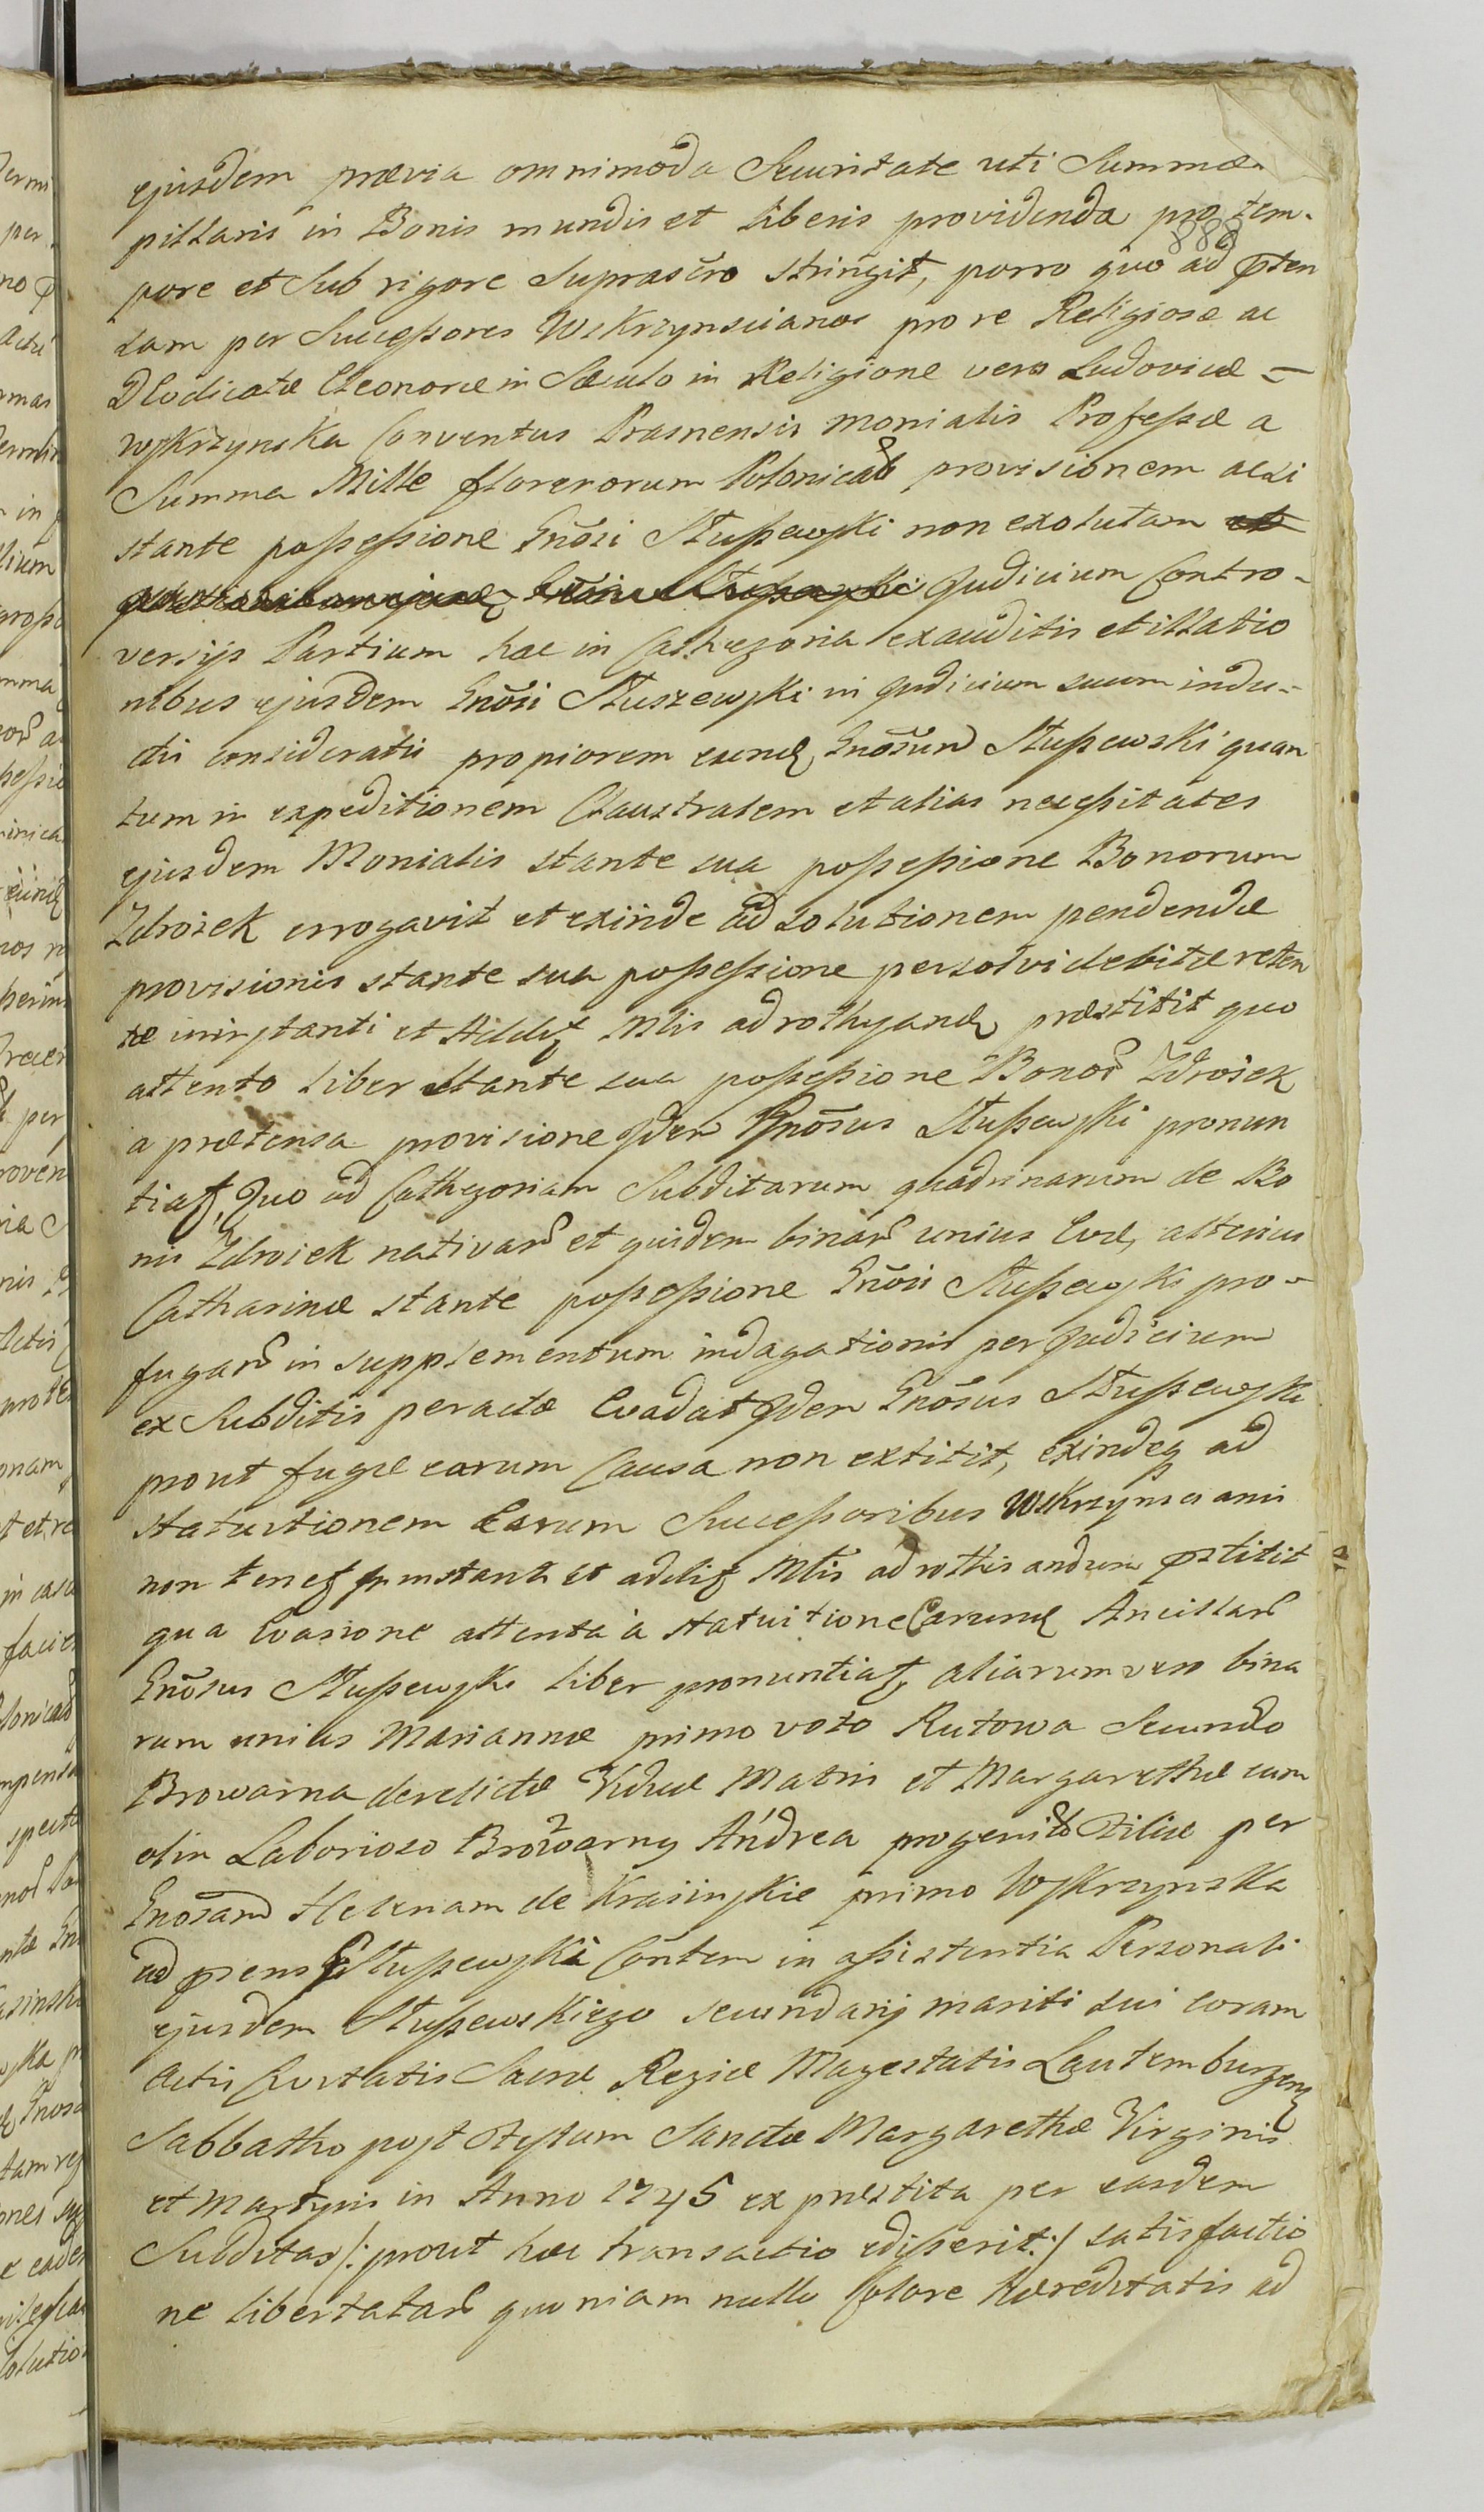 ejusdem prævia omnimoda Securitate uti Summæ
pillaris in Bonis mundis et liberis providenda pro tem-
888
pore et Sub rigore Suprascro stringit, porro quo ad pten
sam per Successores Wskrzynscianos pro re Religiosæ ac
DDicatæ Eleonoræ in Sæculo in Religione vero Ludovicæ =
Wyskrzynska Conventus Prasnensis monialis Professæ a
Summa Mille florenorum Polonical provisionem acti
stante possessione Gnosi Stussewski non exolutam et
Gnosi Stussewski Judicium Contro-
versijs Partium hac in Cathegoria exauditis et illatio
nibus ejusdem Gnosi Stuszewski in Judicium suum indu-
ctis consideratis propiorem eund Gnosum Stussewski quan
tum in expeditionem Claustralem et alias necessitates
ejusdem Monialis stante sua possessione Bonorum
Zdroiek errogavit et exinde ad solutionem pendendæ
provisionis stante sua possessione persolvi debitæ reten
tæ in instanti et Addit Mtis ad rothyand præstitit quo
attento liber stante sua possessione Bonor Zdroiek
a prætensa provisione Idem Gnosus Stussewski pronun
tiat, Quo ad Cathegoriam Subditarum quadrinarum de Bo
nis Zdroiek nativar et quidem binar unius Evæ, alterius
Catharinæ stante possessione Gnosi Stussewski pro-
fugar in supplementum indagationis per Judicium
ex Subditis peractæ Evadat Idem Gnosus Stussewski
prout fugæ earum Causa non extitit, exindeq ad
statuitionem Earum Successoribus Wskrzynscianis
non tenet in instanti et addit Mtis ad rothisandum pstitit
qua Evasione attenta a statuitione Earund Ancillar
Gnosus Stussewski liber pronuntiat, aliarum vero bina
rum unius Mariannæ primo voto Rutowa Secundo
Browarna derelictæ Viduæ Matris et Margarethæ cum
olim Laborioso Browarny Andrea progenitæ Filiæ per
Gnosam Helenam de Krasinskie primo Wyskrzynska
ad præns Stussewska Contem in assistentia Personali
ejusdem Stussewskiego secundarij mariti sui coram
Actis Civitatis Sacræ Regiæ Mayestatis Lautemburgens
Sabbatho post Festum Sanctæ Margarethæ Virginis
et Martyris in Anno 1745 ex præstita per easdem
Subditas /: prout hæc transactio edisserit :/ satisfactio
ne libertatar quoniam nullo solore hæreditatis ad